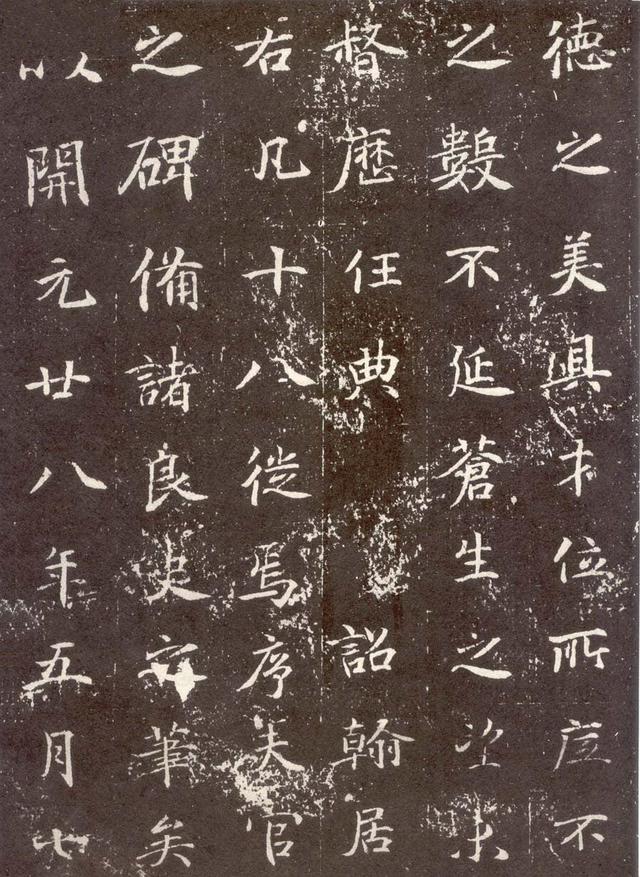 德之美與才位所不
之數不延蒼生之未
督歷任典詔翰居
右凡十八徙焉序夫官
之碑備諸良史矣
以開元廿八年五月七